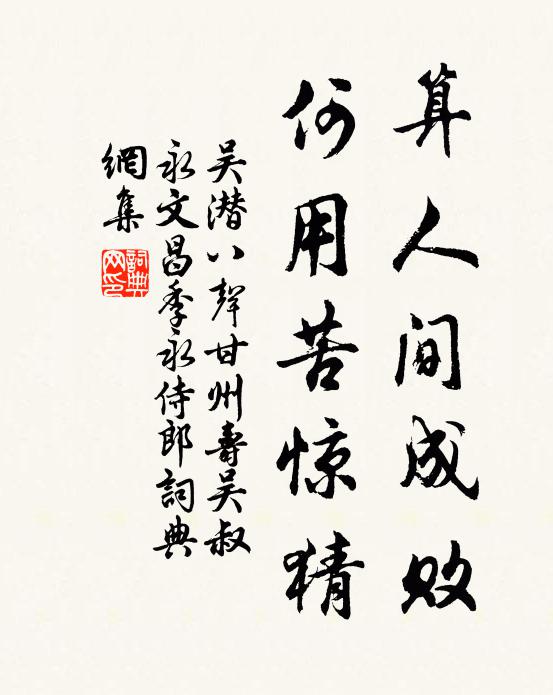 算人间成败
何用苦惊猜
吴潜八聲甘州壽吴叔
永文昌季永侍郎詞典
網集
詞典网印